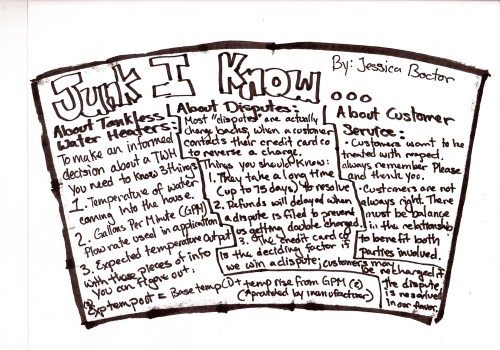 Junk I Know...
By: Jessica Boctor
About Tankless
Water Heaters:
To make an informed
decision about a TWH
you need to know 3 things
1. Temperature of water
coming into the house.
2. Gallons Per Minute (GPM)
Flow rate used in application
3. Expected temperature output
with those pieces of info
you can figure out:
Exp temp out = Base temp (1) + temp rise from GPM (2)
(*provided by manufacturer)
About Disputes:
Most "disputes" are actually
charge backs, when a customer
contacts their credit card co
to reverse a charge.
Things you should know:
1. They take a long time
(up to 75 days) to resolve
2. Refunds will delayed when
a dispute is filed to prevent
us getting double charged.
3. The credit card co
is the deciding factor if
we win a dispute; customers may
be recharged if
the dispute
is resolved
in our favor.
About Customer
Service:
· Customers want to be
treated with respect.
always remember Please
and thank you.
· Customers are not
always right. There
must be balance
in the relationship
to benefit both
parties involved.